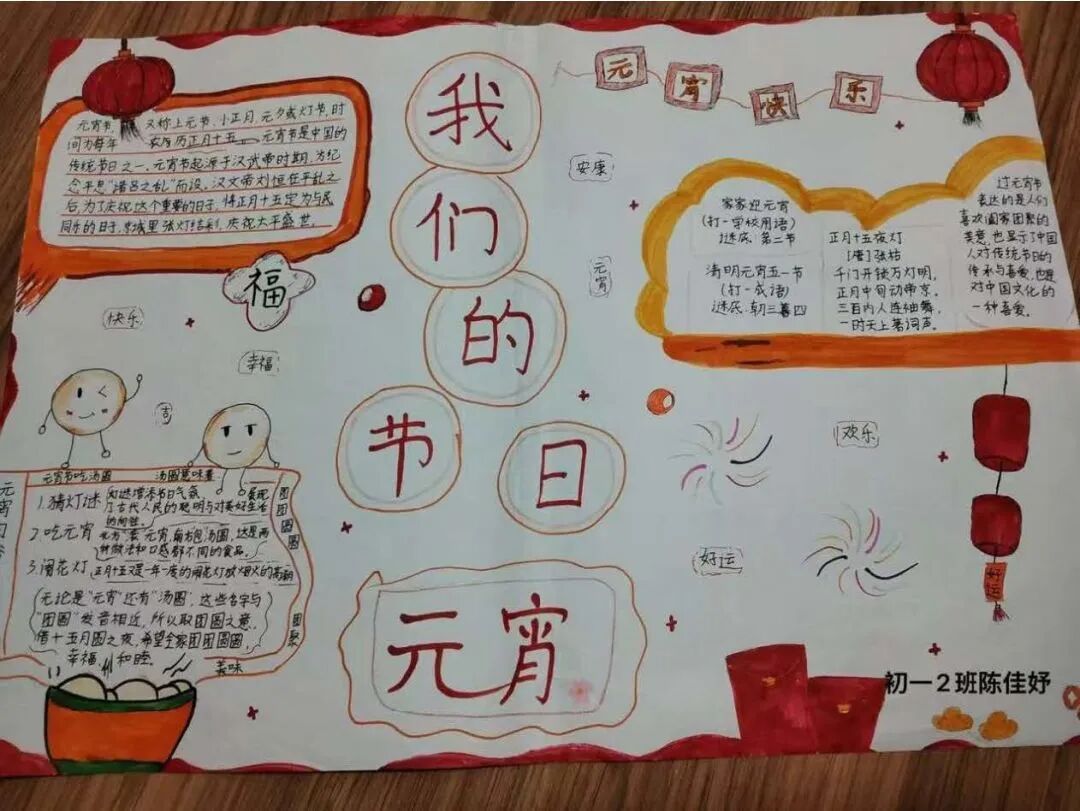 我
们
的
节
日
元宵
元宵快乐
元宵节,又称上元节、小正月、元夕或灯节,时
间为每年农历正月十五 元宵节是中国的
传统节日之一,元宵节起源于汉武帝时期,为纪
念平息“诸吕之乱”而设,汉文帝刘恒在平乱之
后,为了庆祝这个重要的日子,将正月十五定为与民
同乐的日子,京城里张灯结彩,庆祝太平盛世。
福
快乐
幸福
吉
安康
元宵
家家迎元宵
(打一学校用语)
谜底:第二节
清明元宵五一节
(打一成语)
谜底:朝三暮四
正月十五夜灯
[唐]张祜
千门开锁万灯明,
正月中旬动帝京。
三百内人连袖舞,
一时天上著词声。
过元宵节
表达的是人们
喜欢阖家团聚的
美意,也显示了中国
人对传统节日的
传承与喜爱,也是
对中国文化的
一种喜爱。
欢乐
好运
好运
元宵节吃汤圆 汤圆意味着
团团圆圆
团聚
1.猜灯谜 增添节日气氛, 展现
了古代人民的聪明与对美好生活
的向往。
2.吃元宵 北方“滚”元宵,南方包汤圆,这是两
种做法和口感都不同的食品。
3.闹花灯 正月十五又是一年一度的闹花灯放烟火的高潮
无论是“元宵”还有“汤圆”,这些名字与
“团圆”发音相近,所以取团圆之意。
借十五月圆之夜,希望全家团团圆圆,
幸福,和睦。
美味
初一2班陈佳妤